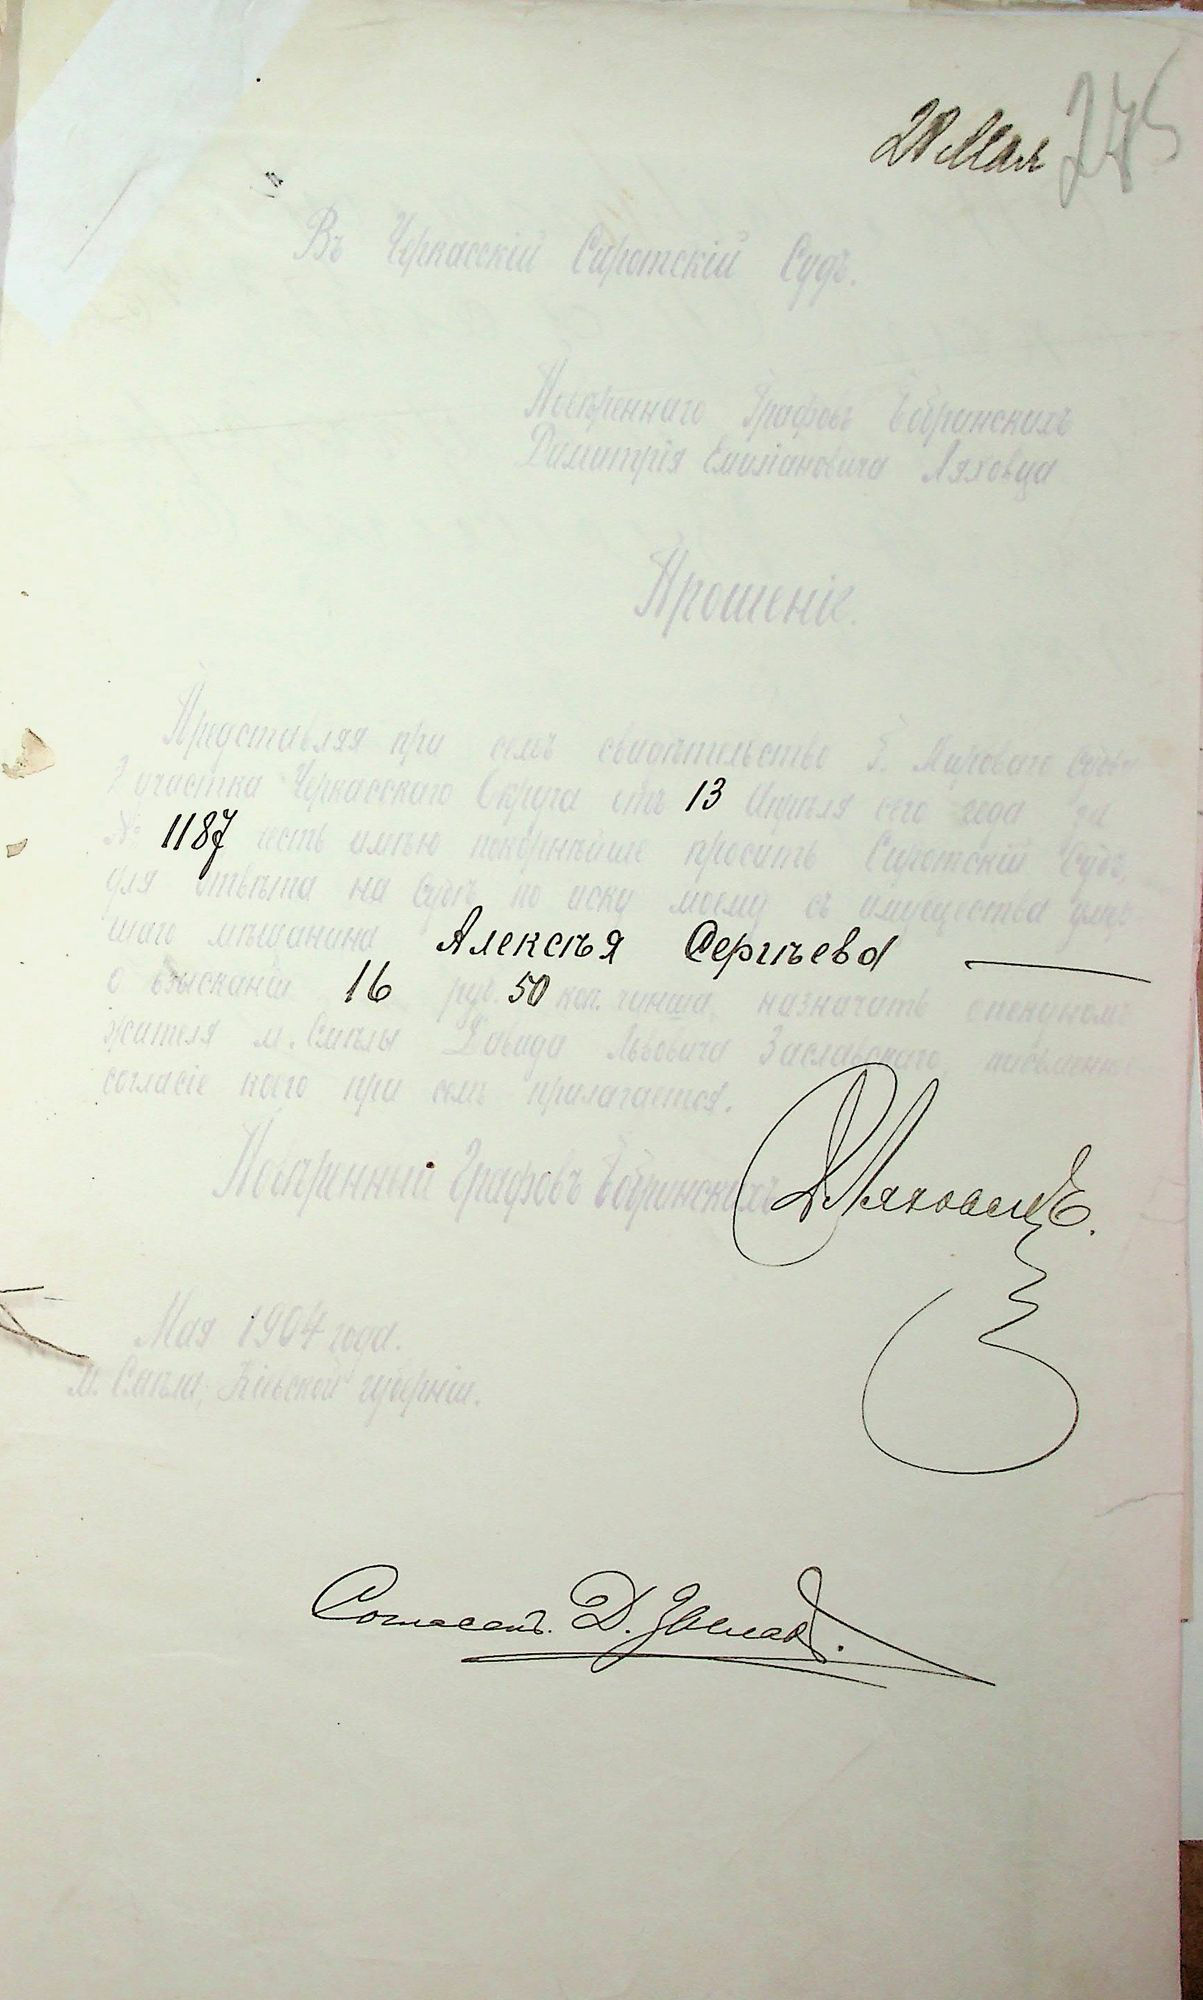 20 Мая
Въ Черкасскій Сиротскій Судъ.
Повѣреннаго Графовъ Бобринскихъ
Димитрія Емиліановича Ляховца
Прошеніе.
Представляя при семъ свидѣтельство Г. Мироваго Судьи
2 участка Черкасскаго Округа отъ 13 Апрѣля сего года за
№ 1187 честь имѣю покорнѣйше просить Сиротскій Судъ,
для отвѣта на Судѣ по иску моему съ имущества умер-
шаго мѣщанина Алексѣя Сергѣева
о взысканіи 16 руб. 50 коп. чинша, назначить опекуномъ
жителя м. Смѣлы Давида Львовича Заславскаго, письменное
согласіе коего при семъ прилагается.
Повѣренный Графовъ Бобринскихъ Д Ляховецъ.
Мая 1904 года.
М. Смѣла, Кіевской губерніи.
Согласенъ. Д. Заслав.